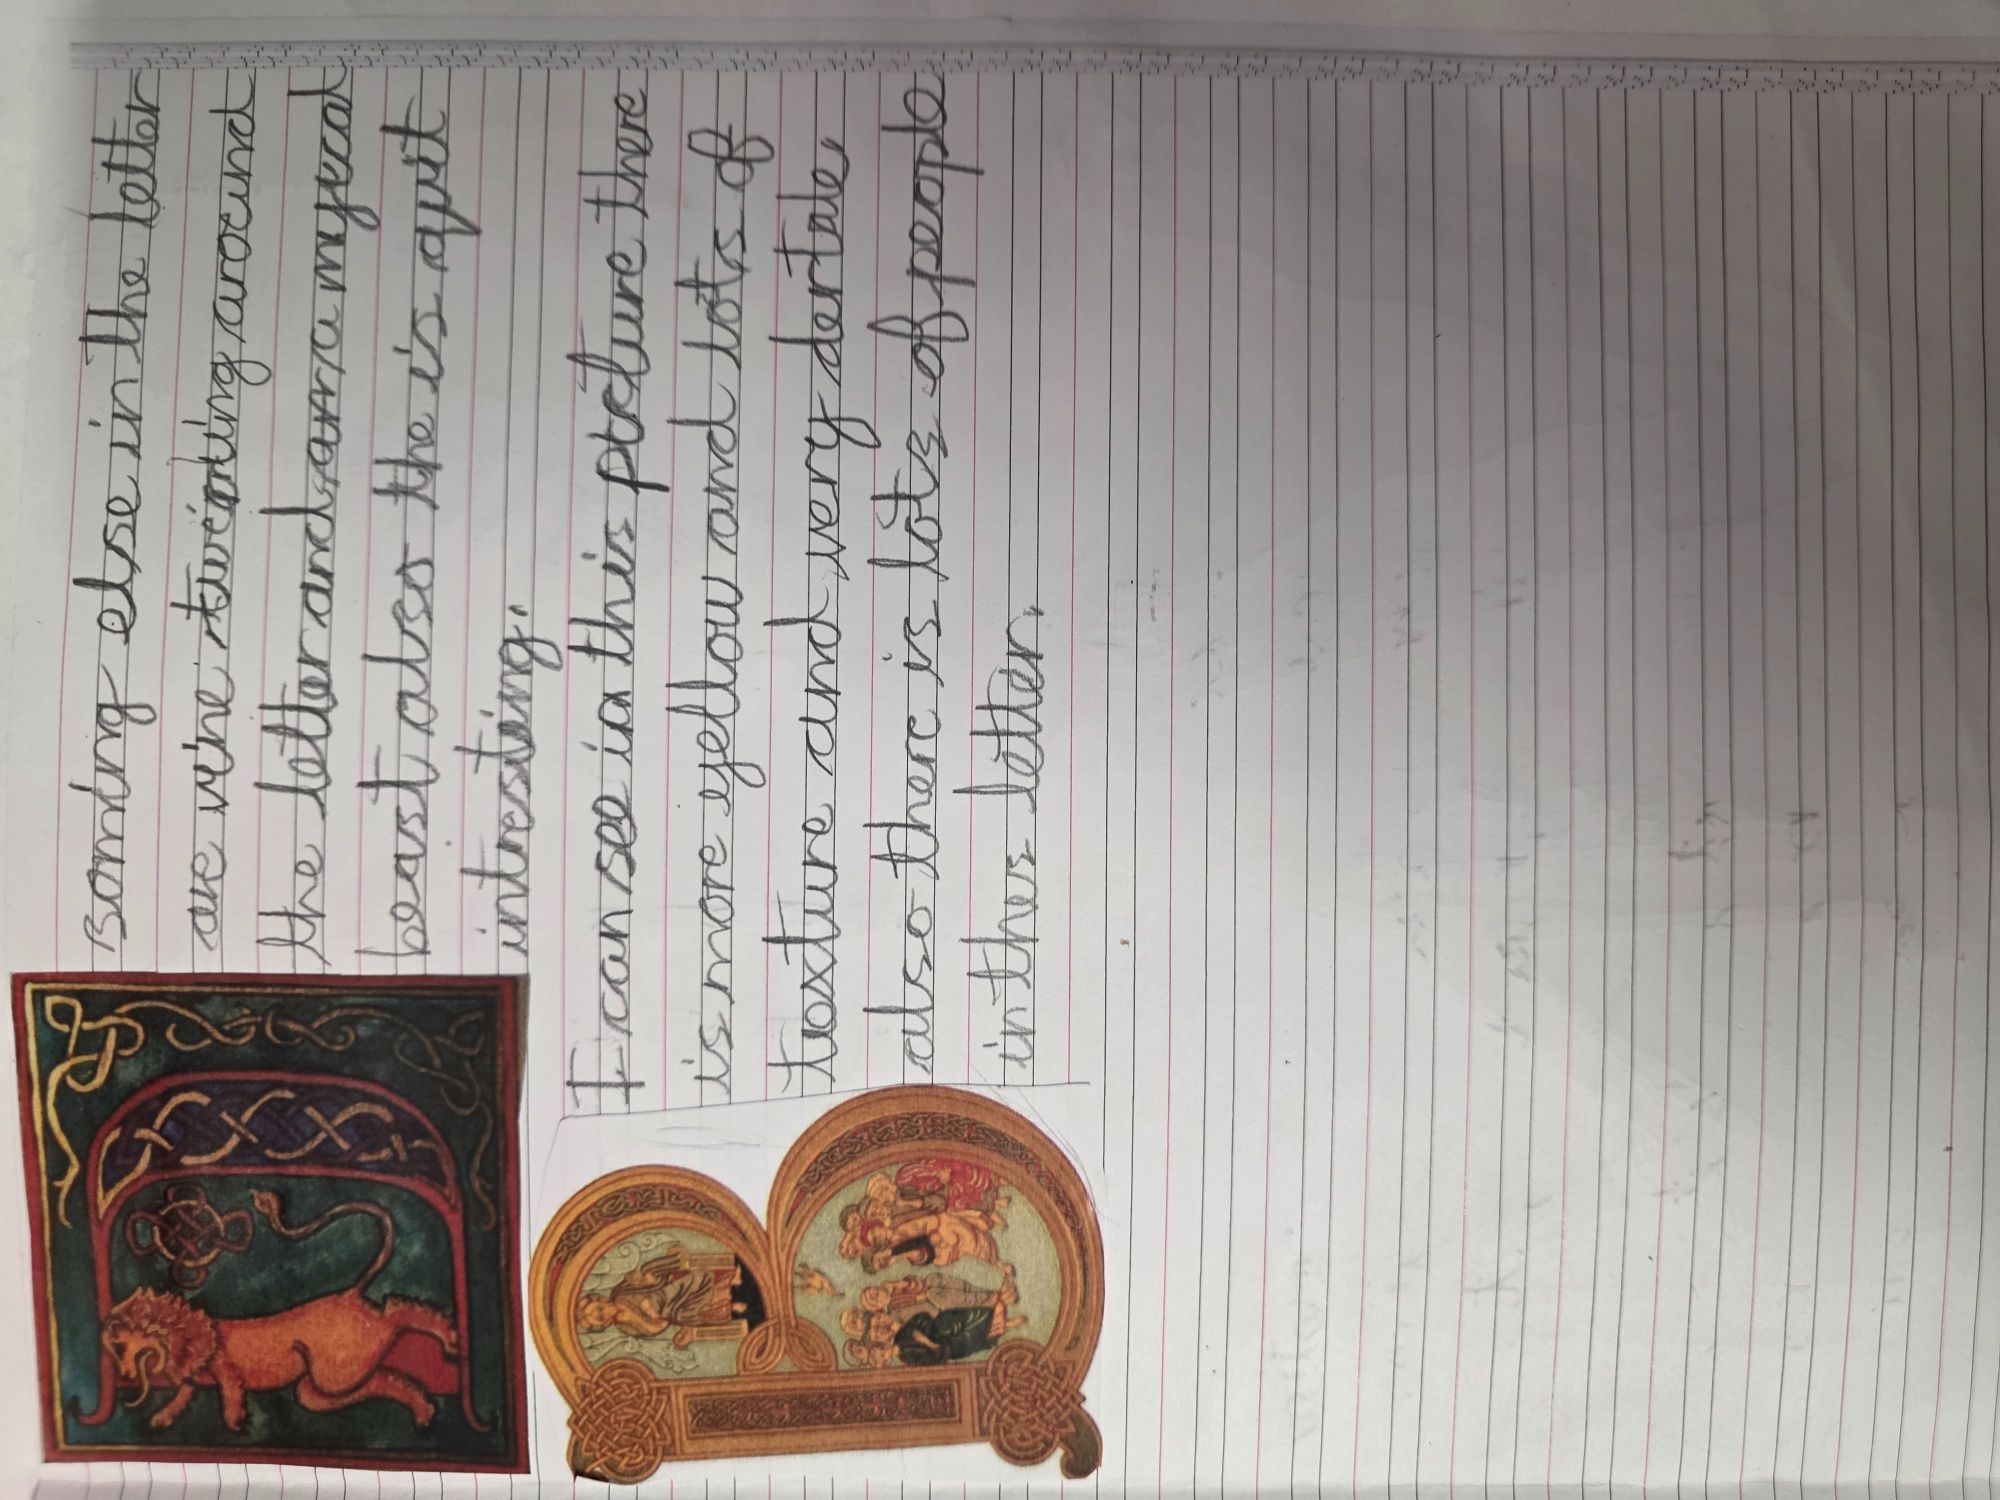 Somting else in the letter
are vine twirling around
the letter and arr a mycal
beast also the is quit
intresting.
I can see in this ptcture there
is more yellow and lots of
texture and very dertale,
also there is lots of people
in thes letter.